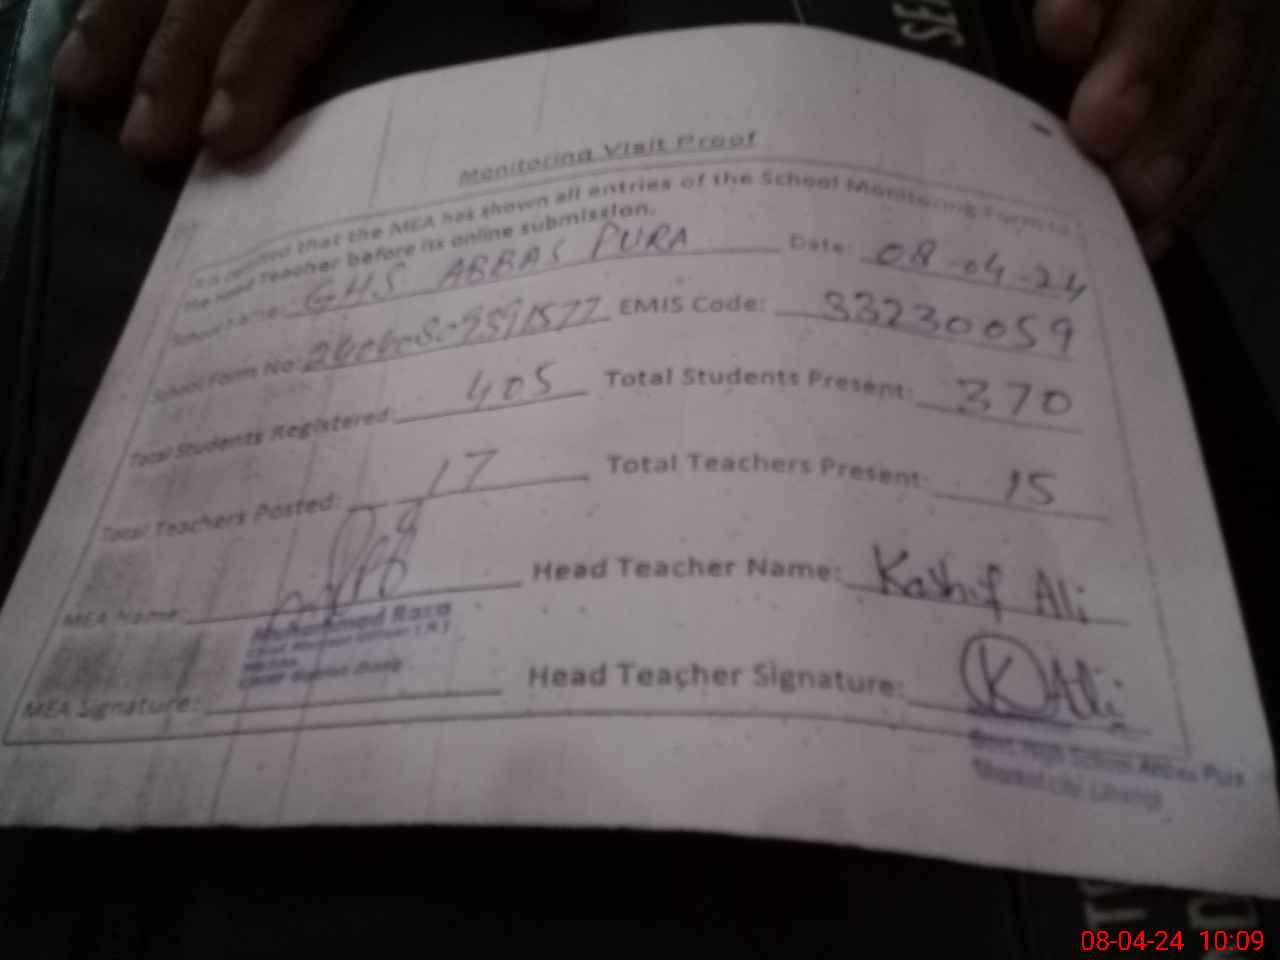 SE
Monitoring Visit Proof
It is certified that the MEA has shown all entries of the School Monitoring Form to
the Head Teacher before its online submission.
School Name: GHS ABBAS PURA Date: 08-04-24
School Form No: EMIS Code: 33230059
Total Students Registered: 405 Total Students Present: 370
Total Teachers Posted: 17 Total Teachers Present: 15
MEA Name: Head Teacher Name: Kashif Ali
Muhammad Raza
MEA Signature: Head Teacher Signature: K Ali
Govt. High School Abbas Pura
08-04-24 10:09